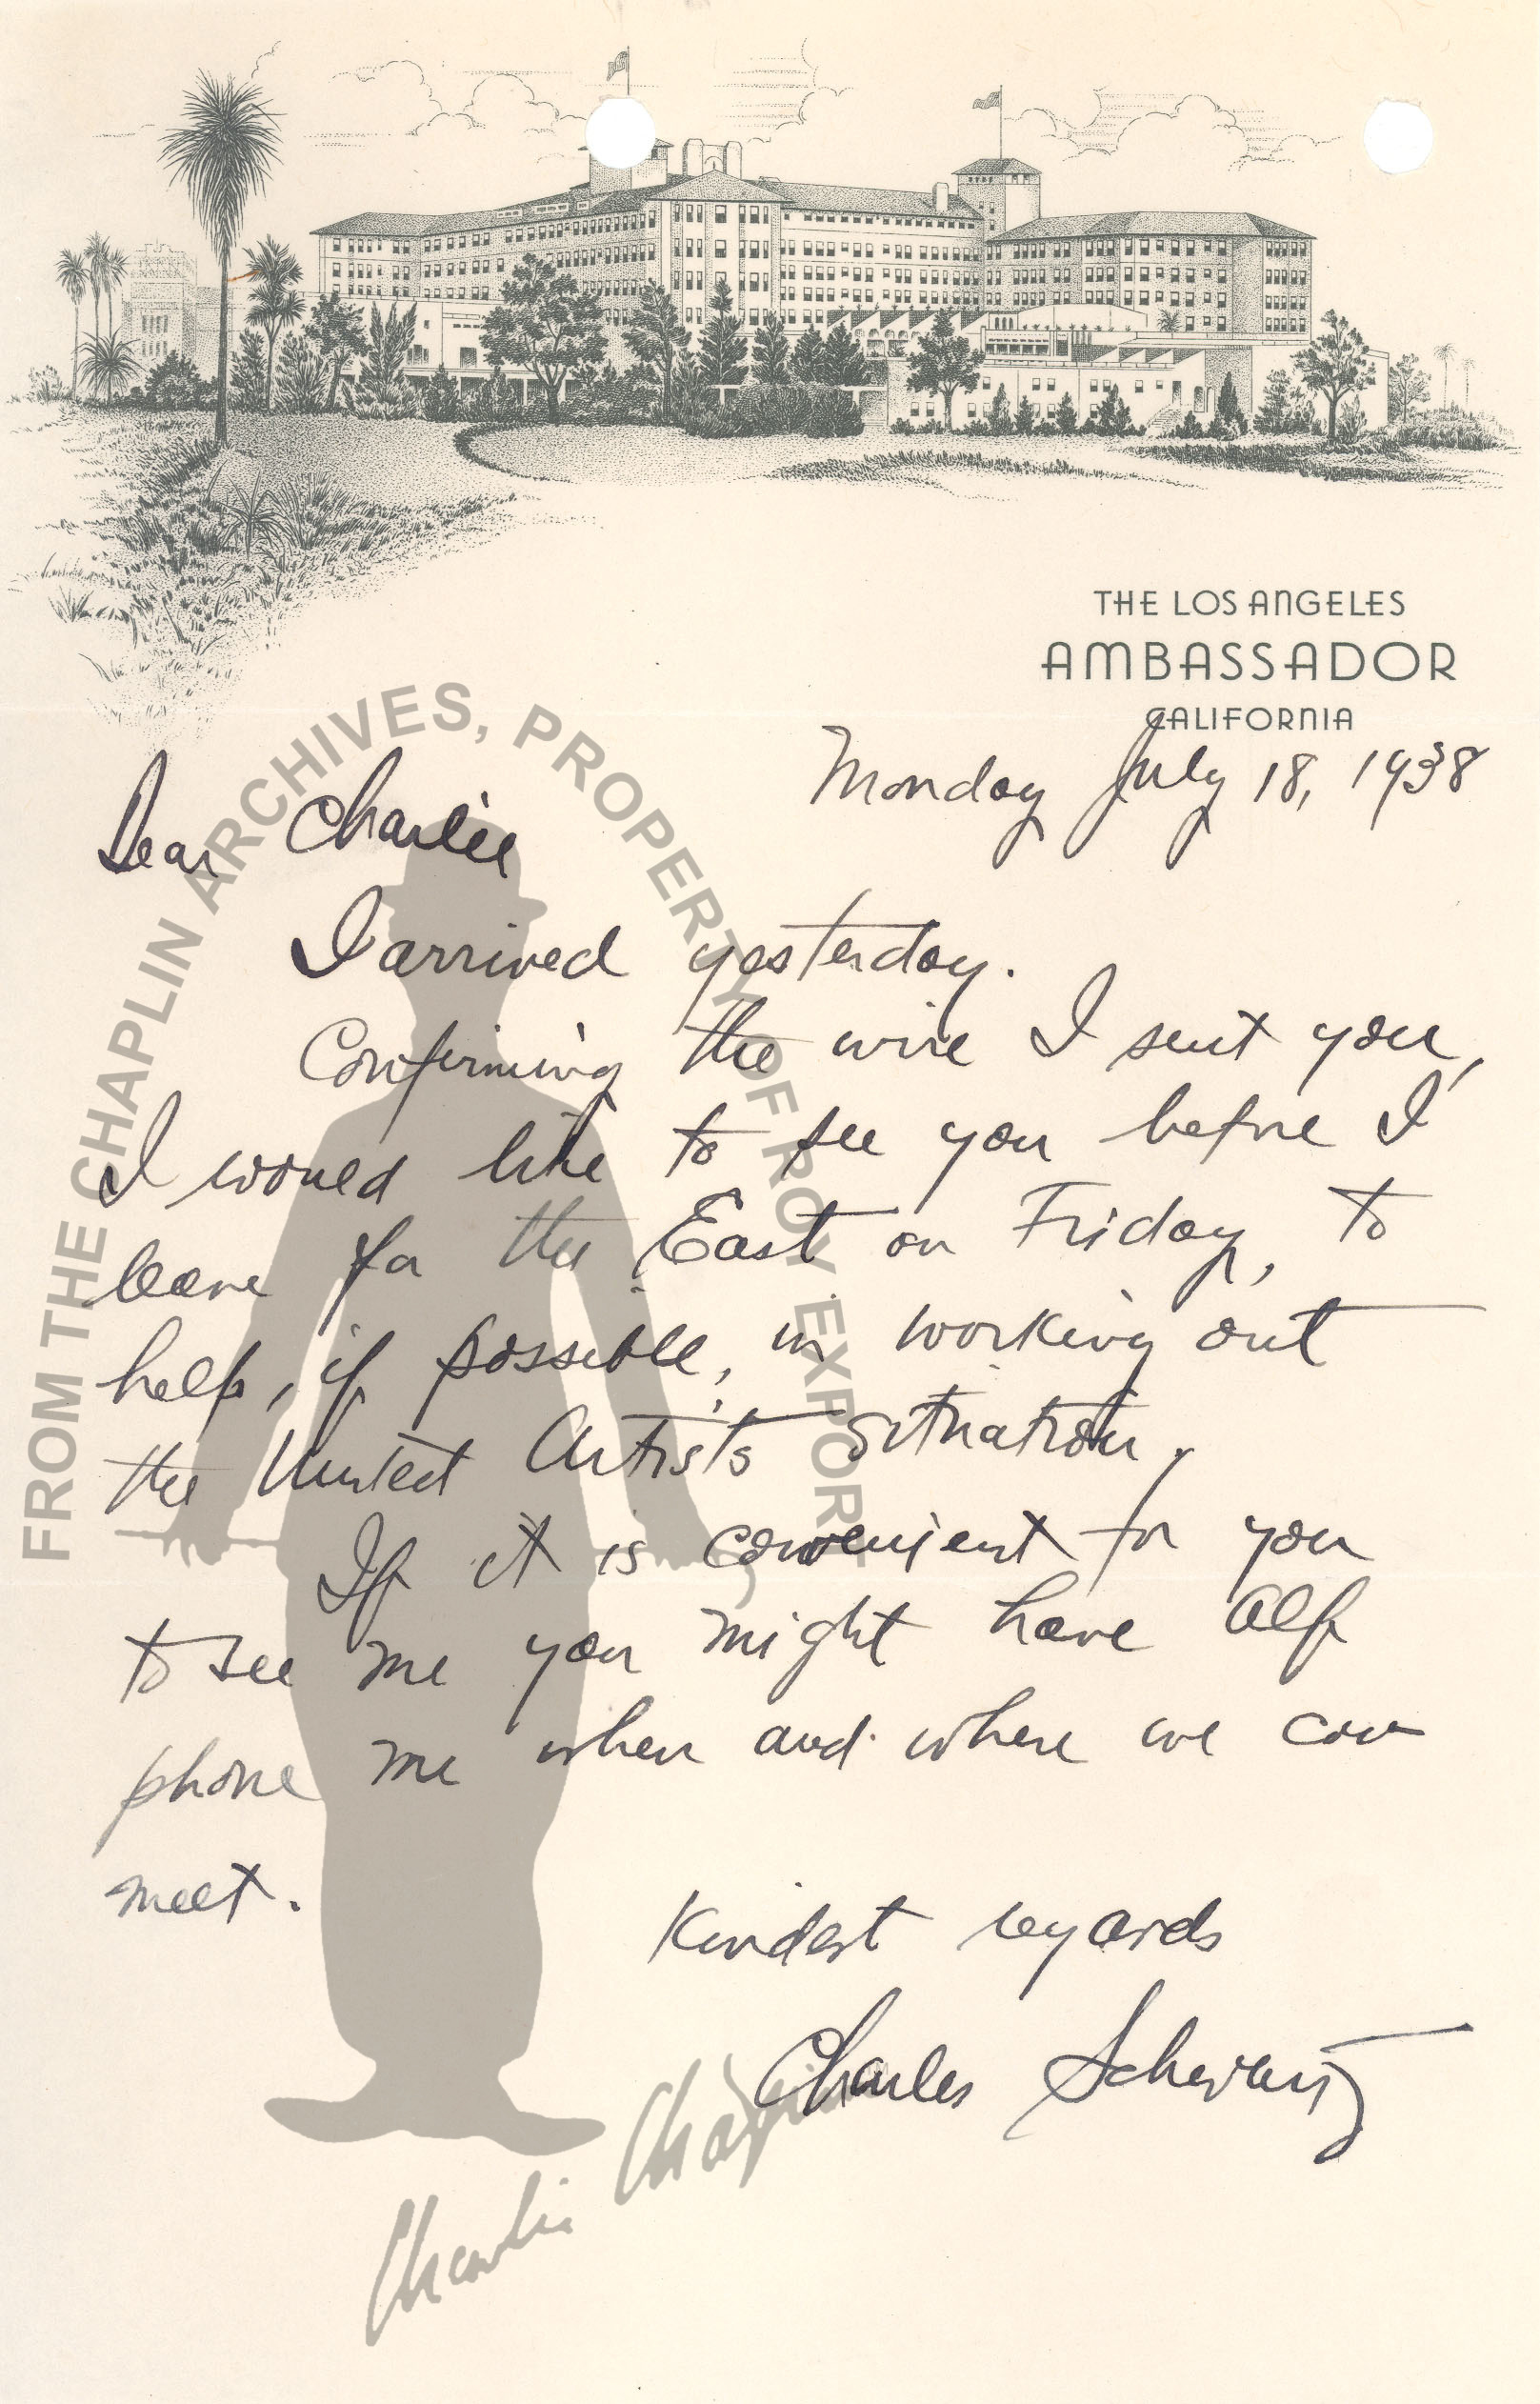 THE LOS ANGELES
AMBASSADOR
CALIFORNIA
Monday July 18, 1938
Dear Charlie
I arrived yesterday.
Confirming the wire I sent you,
I would like to see you before I
leave for the East on Friday, to
help, if possible, in working out
the United Artists situation.
If it is convenient for you
to see me you might have Alf
phone me when and where we can
meet.
Kindest regards
Charles Schwartz
FROM THE CHAPLIN ARCHIVES, PROPERTY OF ROY EXPORT
Charlie Chaplin